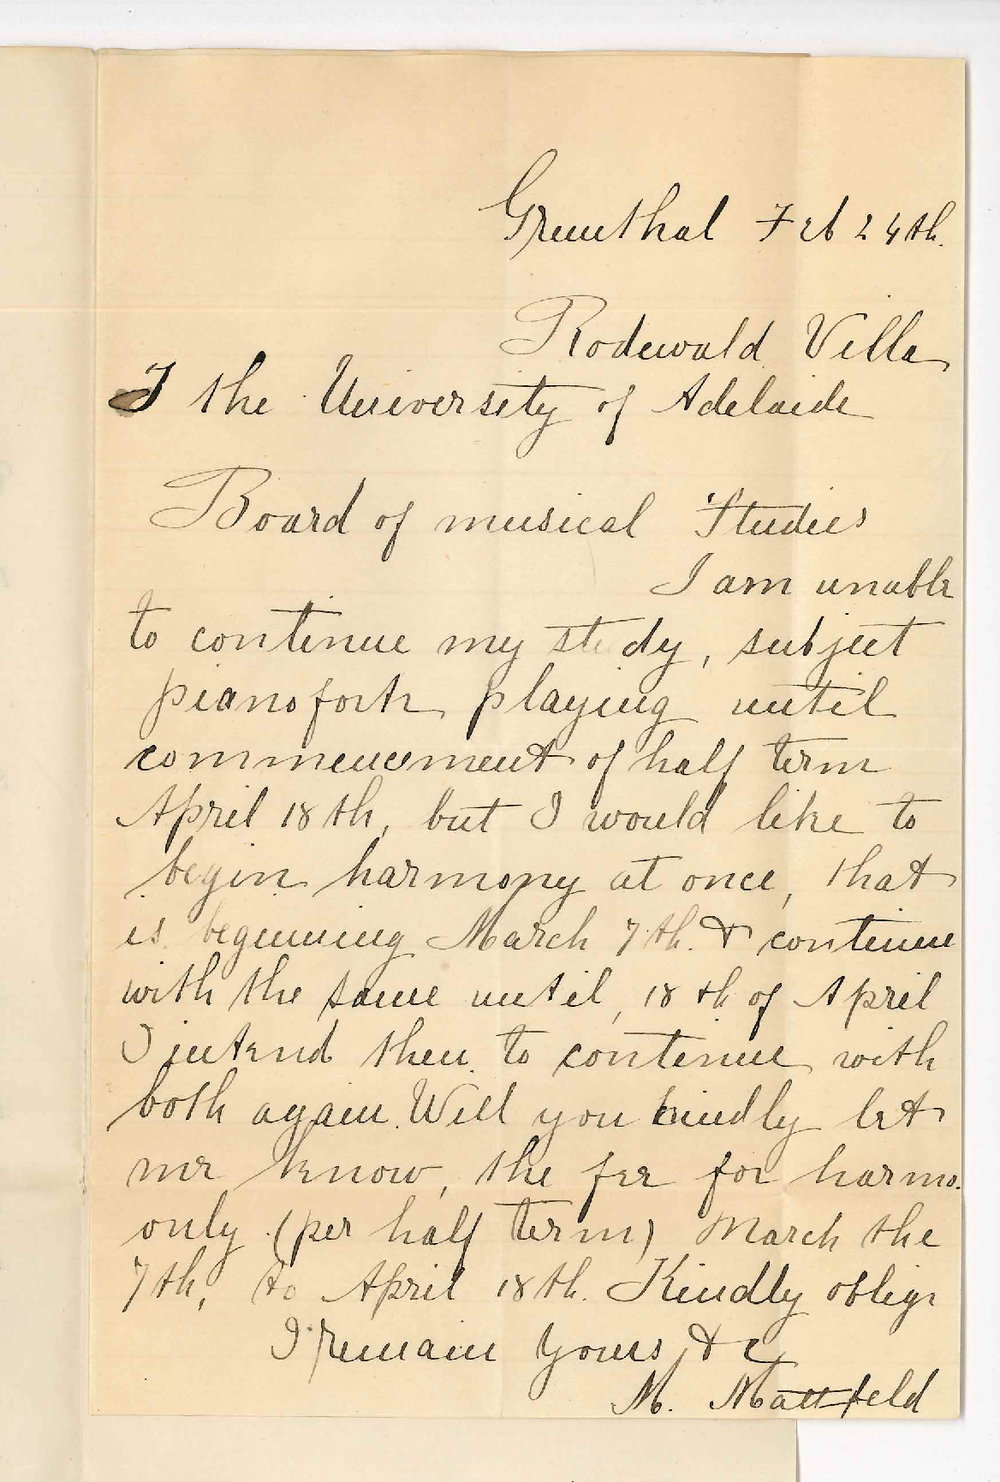 Grunthal Feb 24th.
Rodewald Villa
T the University of Adelaide
Board of musical Studies
I am unable
to continue my study, subject
pianoforte playing until
commencement of half term
April 18th, but I would like to
begin harmony at once, that
is beginning March 7th. & continue
with the same until, 18th of April
I intend then to continue with
both again. Will you kindly let
me know, the fee for harmo.
only (per half term) March the
7th, to April 18th. Kindly oblige
I remain Yours &c
M. Mattfeld